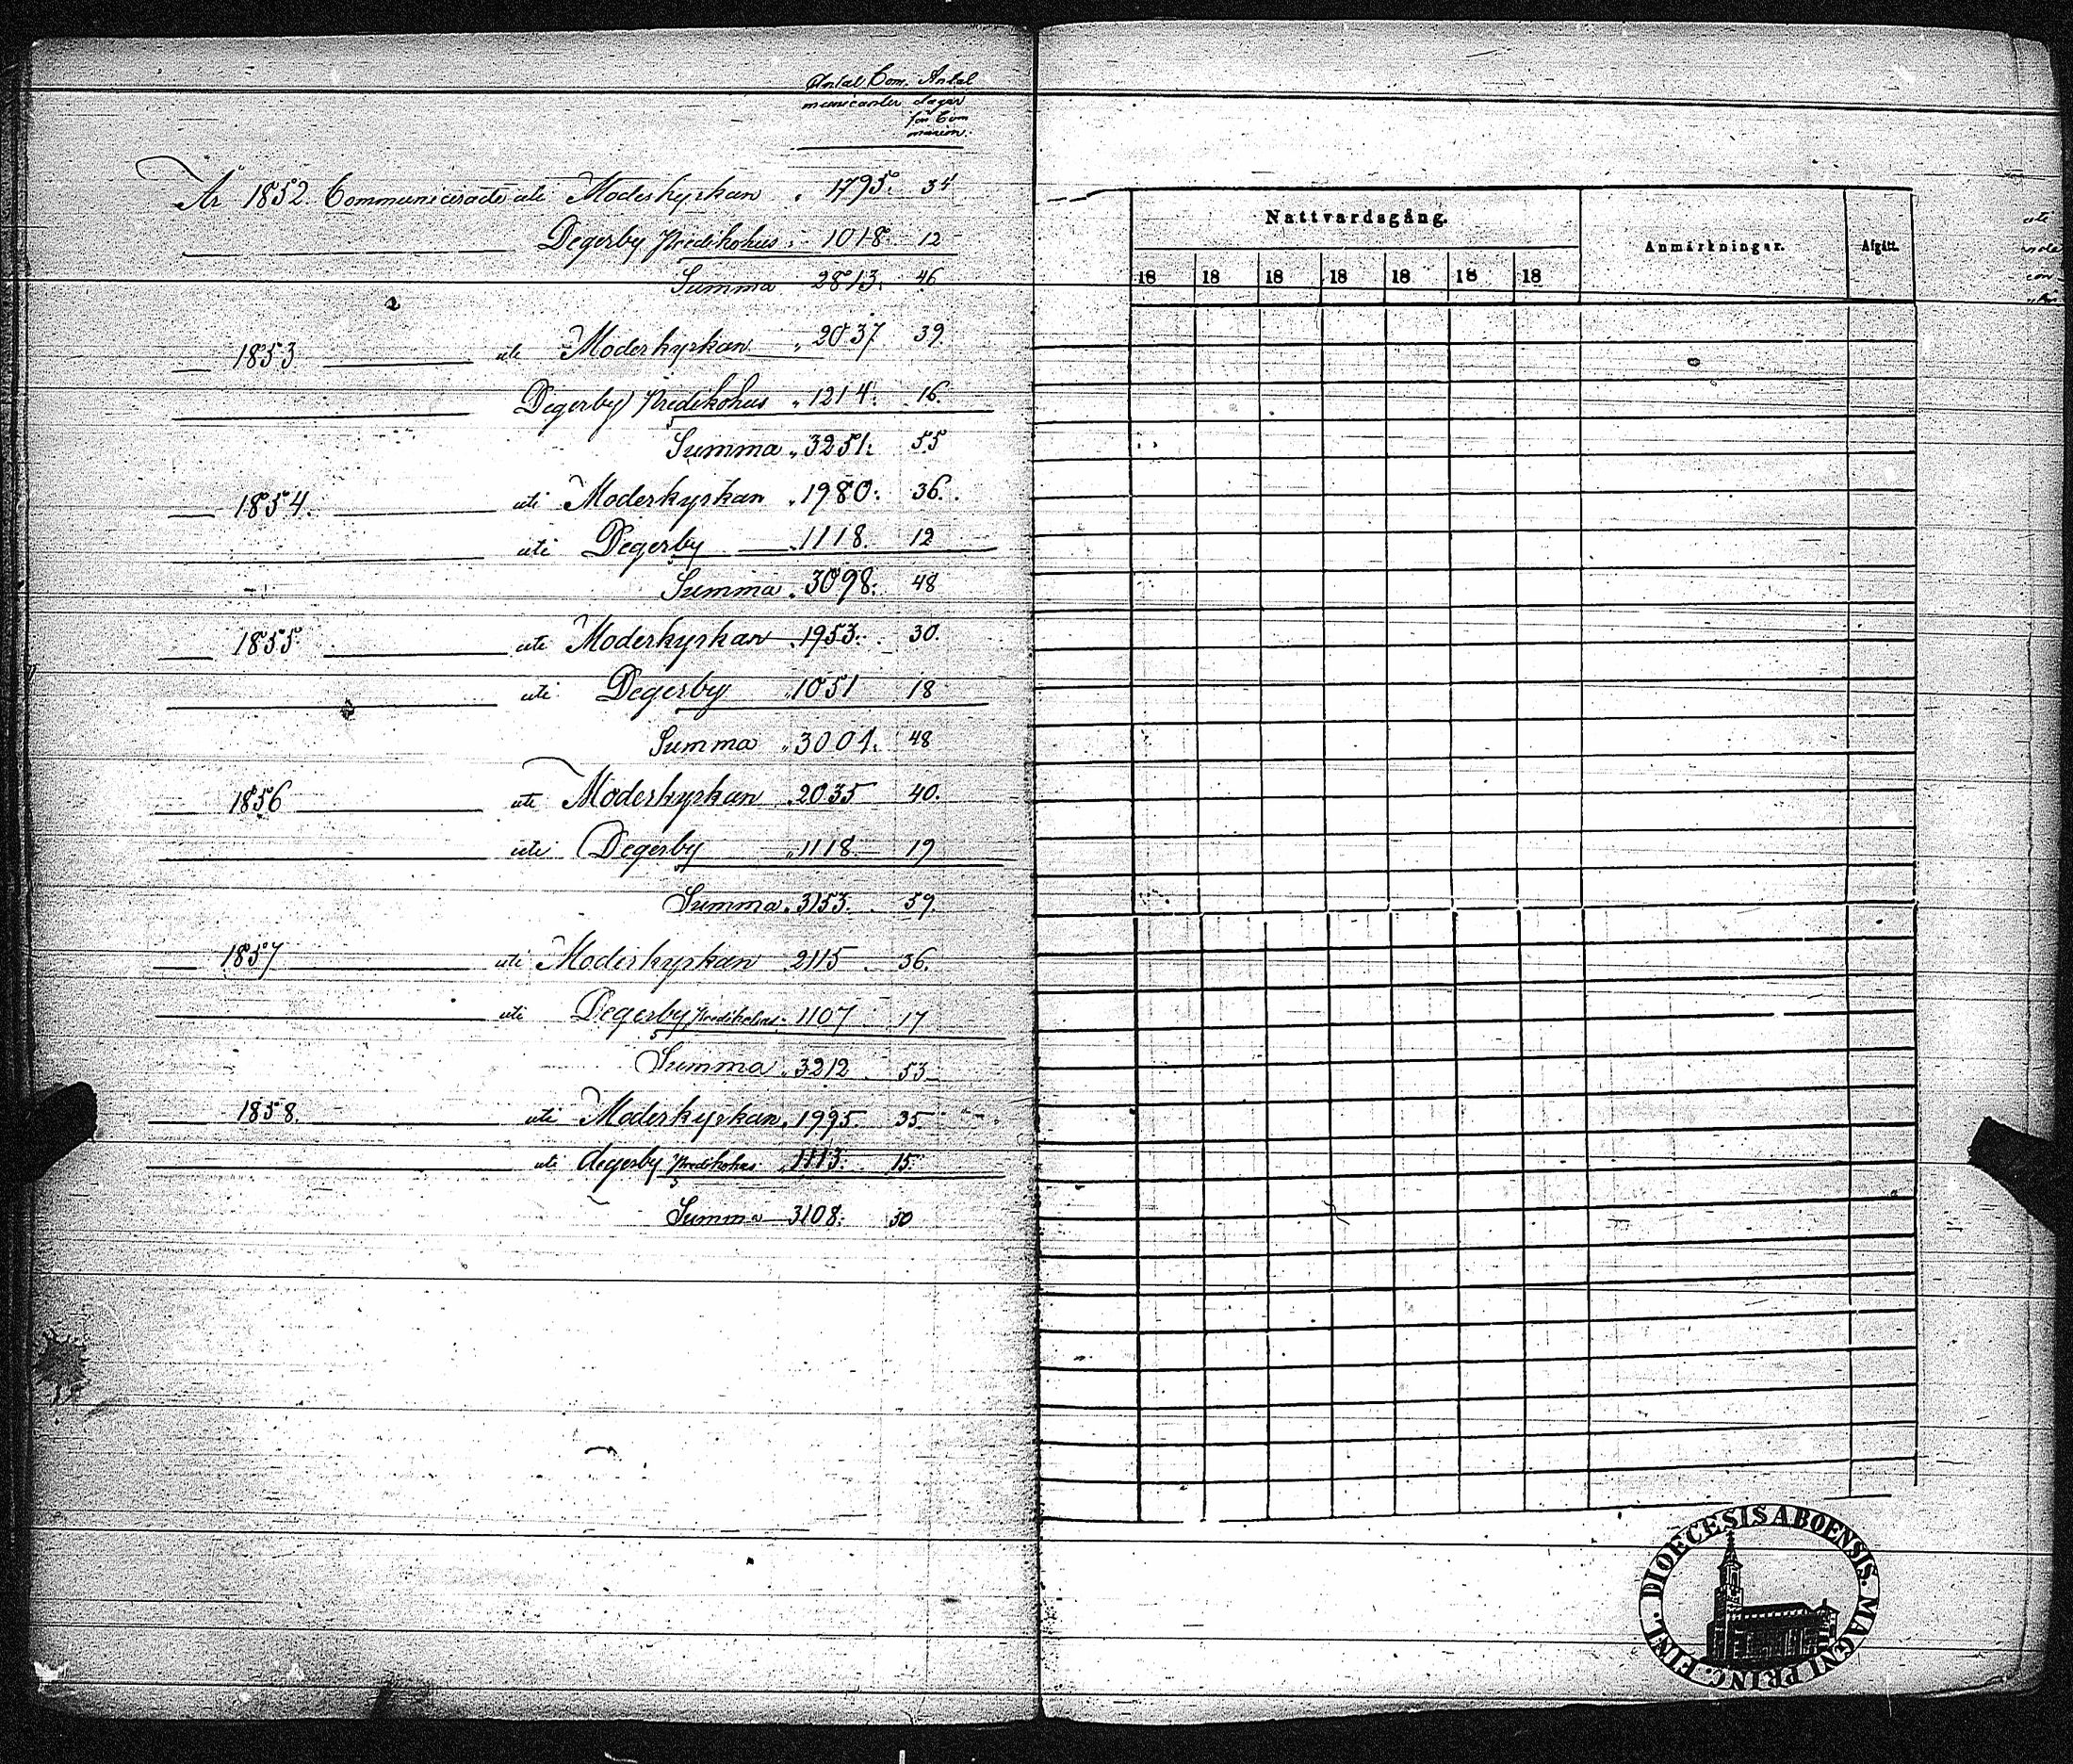 Antal Com- Antal
municanter dagar
för Com
munion.
År 1852. Communicerade uti Moderkyrkan " 1795. 34
Degerby Predikohus " 1018. 12
Summa 2813. 46
1853 uti Moderkyrkan " 2037 39.
Degerby Predikohus " 1214. 16.
Summa " 3251. 55
1854. uti Moderkyrkan " 1980. 36.
uti Degerby " 1118. 12
Summa " 3098. 48
1855. uti Moderkyrkan " 1953. 30.
uti Degerby " 1051 18
Summa " 3001. 48
1856 uti Moderkyrkan " 2035 40.
uti Degerby " 1118. 19
Summa " 3153. 59.
1857 uti Moderkyrkan 2115 36.
uti Degerby Predikohus " 1107 17
Summa " 3212 53
1858. uti Moderkyrkan " 1995. 35
uti degerby Predikohus " 1113. 15.
Summa 3108. 50
Nattvardsgång. Anmärkningar. Afgått.
18 18 18 18 18 18 18
FINL. DIOECESIS ABOENSIS. MAGNI PRINC.